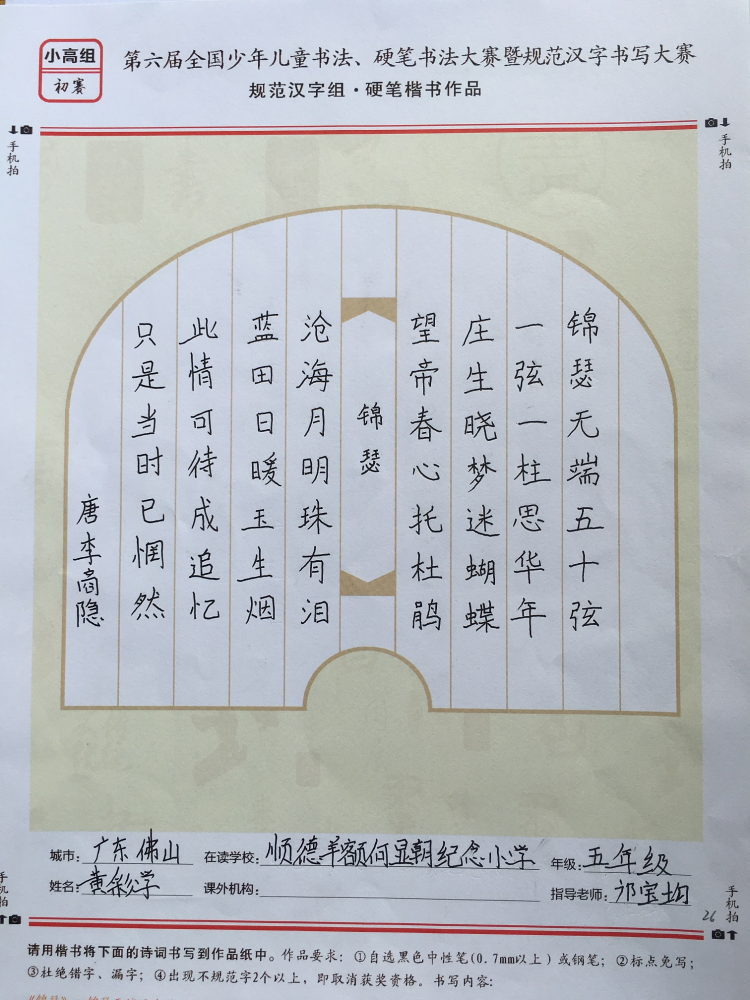 小高组
初赛
第六届全国少年儿童书法、硬笔书法大赛暨规范汉字书写大赛
规范汉字组·硬笔楷书作品
手机拍
手机拍
锦瑟无端五十弦
一弦一柱思华年
庄生晓梦迷蝴蝶
望帝春心托杜鹃
锦瑟
沧海月明珠有泪
蓝田日暖玉生烟
此情可待成追忆
只是当时已惘然
唐李商隐
城市：广东佛山
在读学校：顺德羊额何显朝纪念小学
年级：五年级
姓名：黄彩学
课外机构：
指导老师：邝宝均
26
手机拍
手机拍
请用楷书将下面的诗词书写到作品纸中。作品要求：①自选黑色中性笔(0.7mm以上)或钢笔；②标点免写；
③杜绝错字、漏字；④出现不规范字2个以上，即取消获奖资格。书写内容：